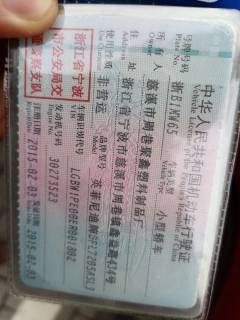 中华人民共和国机动车行驶证
Vehicle License of the People's Republic of China
号牌号码
Plate No.
车辆类型
Vehicle Type
小型轿车
所有人
Owner
慈溪市周巷聚鑫塑料制品厂
住址
Address
浙江省宁波市慈溪市周巷镇
使用性质
Use Character
非营运
品牌型号
Model
英菲尼迪牌
浙江省宁波
市公安局交
通警察支队
车辆识别代号
VIN
发动机号码
Engine No.
注册日期
Register Date
2015-02-03
发证日期
Issue Date
2015-02-03